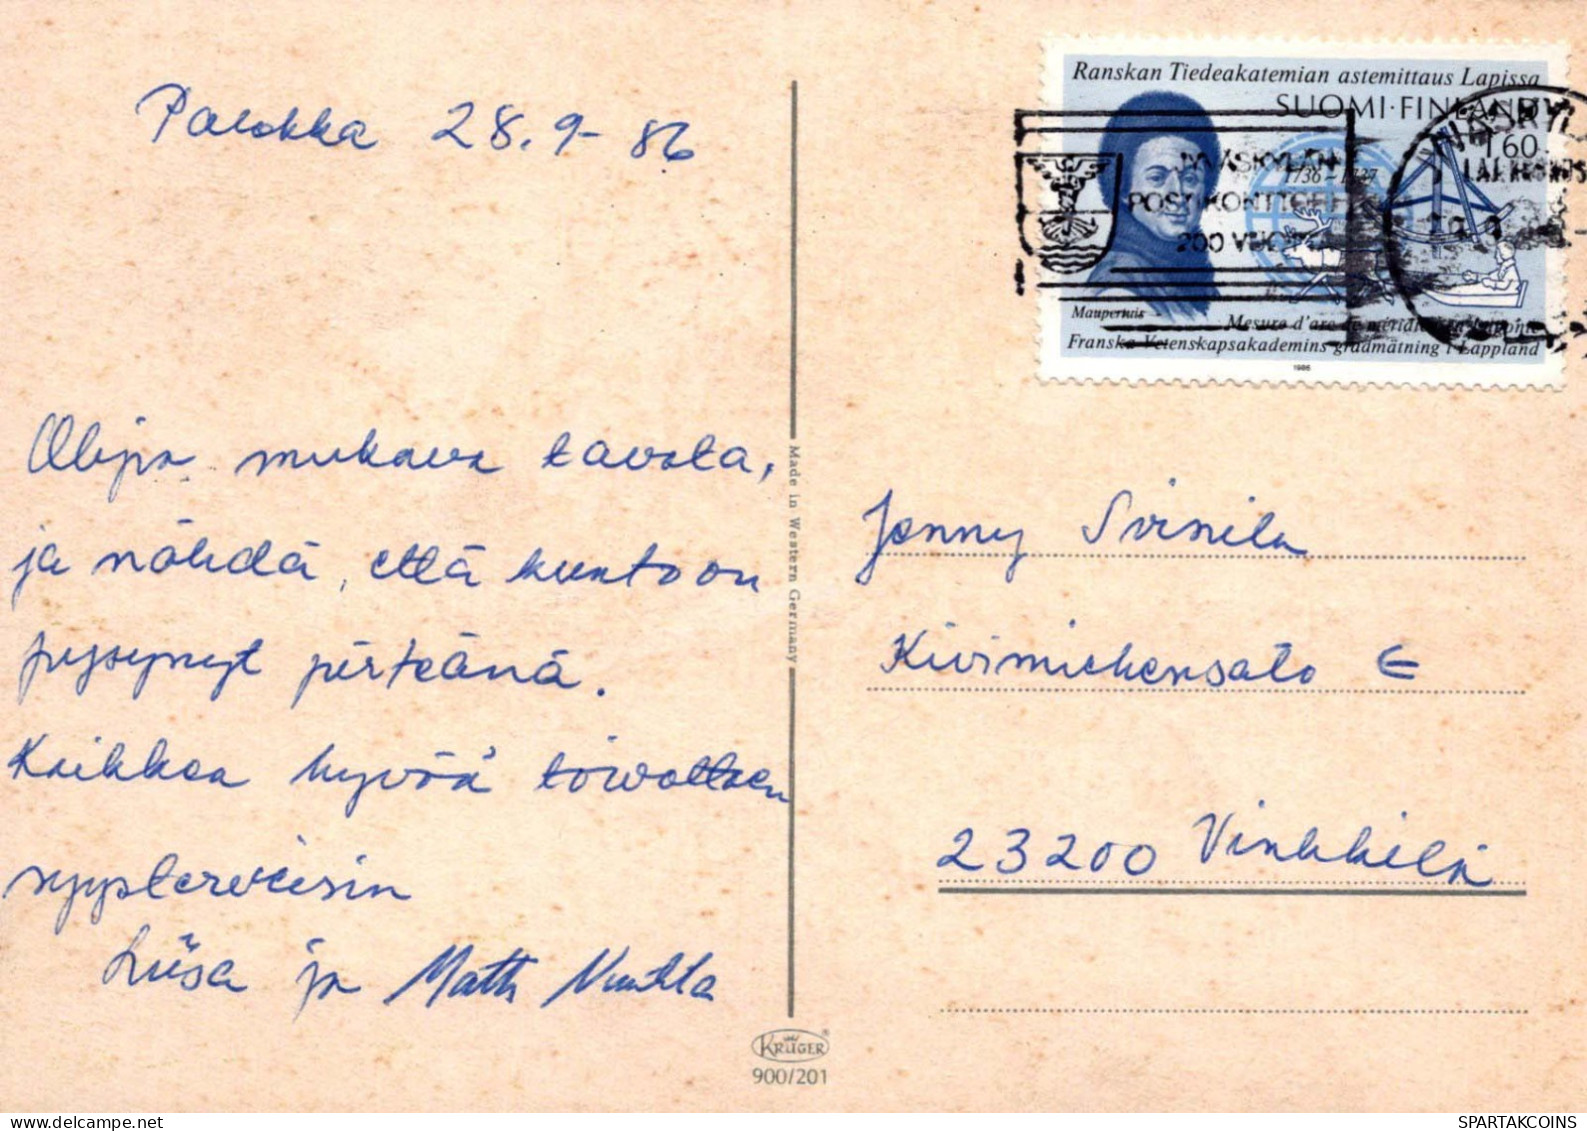 Palokka 28.9-86
Olipa mukava tavata,
ja nähdä, että kuntoon
pysynyt pirteänä.
Kaikkea hyvää toivottaen
syysterveisin
Liisa ja Matti
Made in Western Germany
KRÜGER®
900/201
Ranskan Tiedeakatemian astemittaus Lapissa
SUOMI·FINLAND
1,60
1736–1737
JYVÄSKYLÄN
POSTIKONTTORI
200 VUOTTA
Maupertuis
Mesure d'arc de méridien en Laponie
Franska Vetenskapsakademins gradmätning i Lappland
1986
Jenny
E
23200 Vinkkilä
SPARTAKCOINS